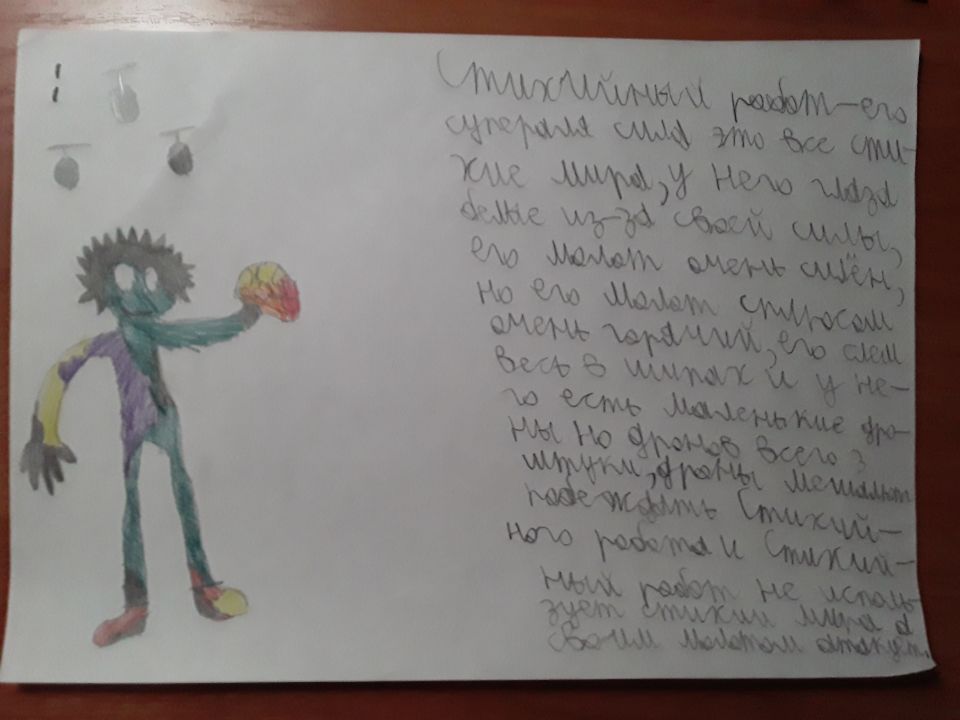 Стихийный работ-его
суперая сила это все сти-
хие мира, у него глаза
белые из-за своей силы,
его молот очень силён,
но его молот
очень горячий, его слем
весь в шипах и у не-
го есть маленькие дро-
ны но дронов всего 3
штуки, дроны мешают
побеждать Стихий-
ного работа и Стихий-
ный работ не исполь-
зует стихии мира а
своим молотом атакует.